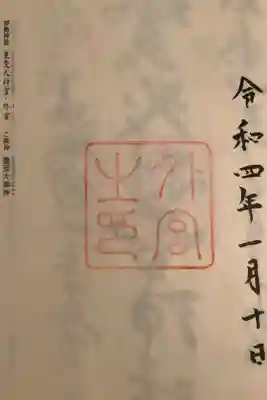 令和四年一月十日
外宮之印
伊勢神宮 豊受大神宮・外宮 ご祭神 豊受大御神